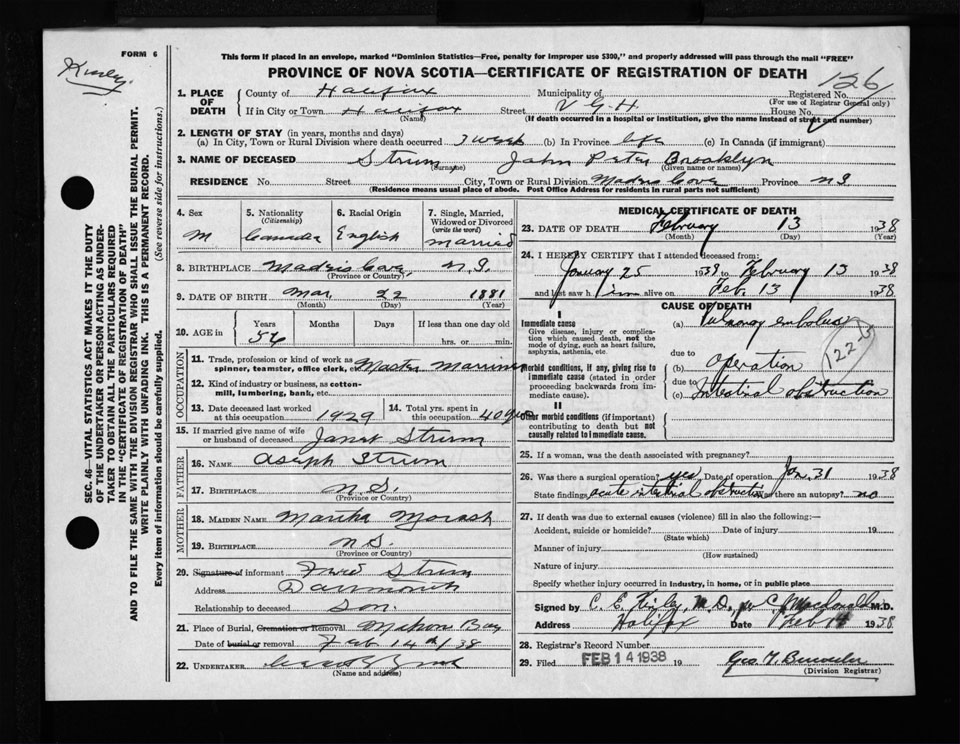 FORM 6
Kinley.
This form if placed in an envelope, marked "Dominion Statistics—Free, penalty for improper use $300," and properly addressed will pass through the mail "FREE"
PROVINCE OF NOVA SCOTIA—CERTIFICATE OF REGISTRATION OF DEATH
126
1. PLACE OF DEATH County of Halifax Municipality of Registered No.
(For use of Registrar General only)
If in City or Town Halifax Street V G H House No.
(Name) (If death occurred in a hospital or institution, give the name instead of street and number)
2. LENGTH OF STAY (in years, months and days)
(a) In City, Town or Rural Division where death occurred 3 weeks (b) In Province life (c) In Canada (if immigrant)
3. NAME OF DECEASED Strum John Peter Brooklyn
(Surname) (Given name or names)
RESIDENCE No. Street City, Town or Rural Division Maders Cove Province N S
(Residence means usual place of abode. Post Office Address for residents in rural parts not sufficient)
4. Sex 5. Nationality 6. Racial Origin 7. Single, Married, Widowed or Divorced
(Citizenship) (write the word)
M Canada English married
8. BIRTHPLACE Maders Cove, N.S.
(Province or Country)
9. DATE OF BIRTH Mar. 22 1881
(Month) (Day) (Year)
10. AGE in Years Months Days If less than one day old
56 hrs. or min.
OCCUPATION
11. Trade, profession or kind of work as spinner, teamster, office clerk, Master Marriner
12. Kind of industry or business, as cotton-mill, lumbering, bank, etc.
13. Date deceased last worked at this occupation 1929 14. Total yrs. spent in this occupation 40 yrs
15. If married give name of wife or husband of deceased Janet Strum
FATHER
16. NAME Aseph Strum
17. BIRTHPLACE N.S.
(Province or Country)
MOTHER
18. MAIDEN NAME Martha Morash
19. BIRTHPLACE N.S.
(Province or Country)
20. Signature of informant Fred Strum
Address Dartmouth
Relationship to deceased Son.
21. Place of Burial, Cremation or Removal Mahone Bay
Date of burial or removal Feb 14th/38
22. UNDERTAKER
(Name and address)
MEDICAL CERTIFICATE OF DEATH
23. DATE OF DEATH February 13 1938
(Month) (Day) (Year)
24. I HEREBY CERTIFY that I attended deceased from:
January 25 1938 to February 13 1938
and last saw him alive on Feb. 13 1938
CAUSE OF DEATH
I
Immediate cause (a) Pulmonary embolus
Give disease, injury or complication which caused death, not the mode of dying, such as heart failure, asphyxia, asthenia, etc.
122-B
due to
Morbid conditions, if any, giving rise to immediate cause (stated in order proceeding backwards from immediate cause). (b) Operation
due to
(c) Intestinal obstruction
II
Other morbid conditions (if important) contributing to death but not causally related to immediate cause.
25. If a woman, was the death associated with pregnancy?
26. Was there a surgical operation? yes Date of operation Jan. 31 1938
State findings acute intestinal obstruction Was there an autopsy? no
27. If death was due to external causes (violence) fill in also the following:—
Accident, suicide or homicide? Date of injury 19
(State which)
Manner of injury
(How sustained)
Nature of injury
Specify whether injury occurred in industry, in home, or in public place
Signed by C. E. Kinley, M.D. per C. J. Macdonald M.D.
Address Halifax Date Feb 14 1938
28. Registrar's Record Number
29. Filed FEB 14 1938 19
(Division Registrar)
SEC. 46—VITAL STATISTICS ACT MAKES IT THE DUTY
OF THE UNDERTAKER OR PERSON ACTING AS UNDER-
TAKER TO OBTAIN ALL THE PARTICULARS REQUIRED
IN THE "CERTIFICATE OF REGISTRATION OF DEATH"
AND TO FILE THE SAME WITH THE DIVISION REGISTRAR WHO SHALL ISSUE THE BURIAL PERMIT.
WRITE PLAINLY WITH UNFADING INK. THIS IS A PERMANENT RECORD.
Every item of information should be carefully supplied. (See reverse side for instructions.)